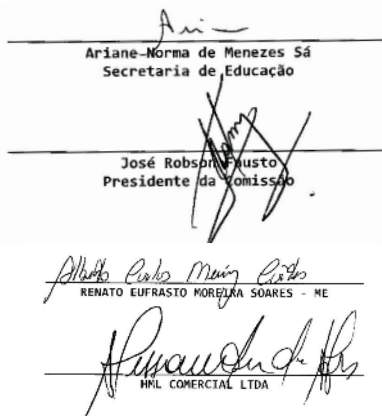 Ariane Norma de Menezes Sá
Secretaria de Educação
José Robson Fausto
Presidente da Comissão
RENATO EUFRASIO MOREIRA SOARES - ME
HML COMERCIAL LTDA